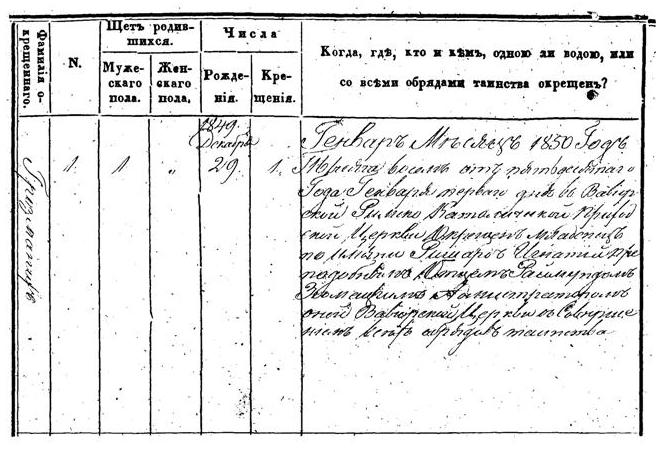 Фамиліи о-
крещеннаго.
N.
Щетъ родив-
шихся.
Муже-
скаго
пола.
Жен-
скаго
пола.
Числа
Рожде-
нія.
Кре-
щенія.
Когда, гдѣ, кто и кѣмъ, одною ли водою, или
со всѣми обрядами таинства окрещенъ?
1.
1
„
1849
Декабрь
29
1.
Генварь Мѣсяцъ 1850 Годъ
восемь отъ пятьдесятаго
Года Генваря перваго дня въ
Римско Католической Приход
ской Церкви Окрещенъ Младенецъ
по имѣни Игнатій Пре
подобнымъ Отцемъ Раймундомъ
Администраторомъ
оной Церкви въ
ніемъ всѣхъ обрядовъ таинства